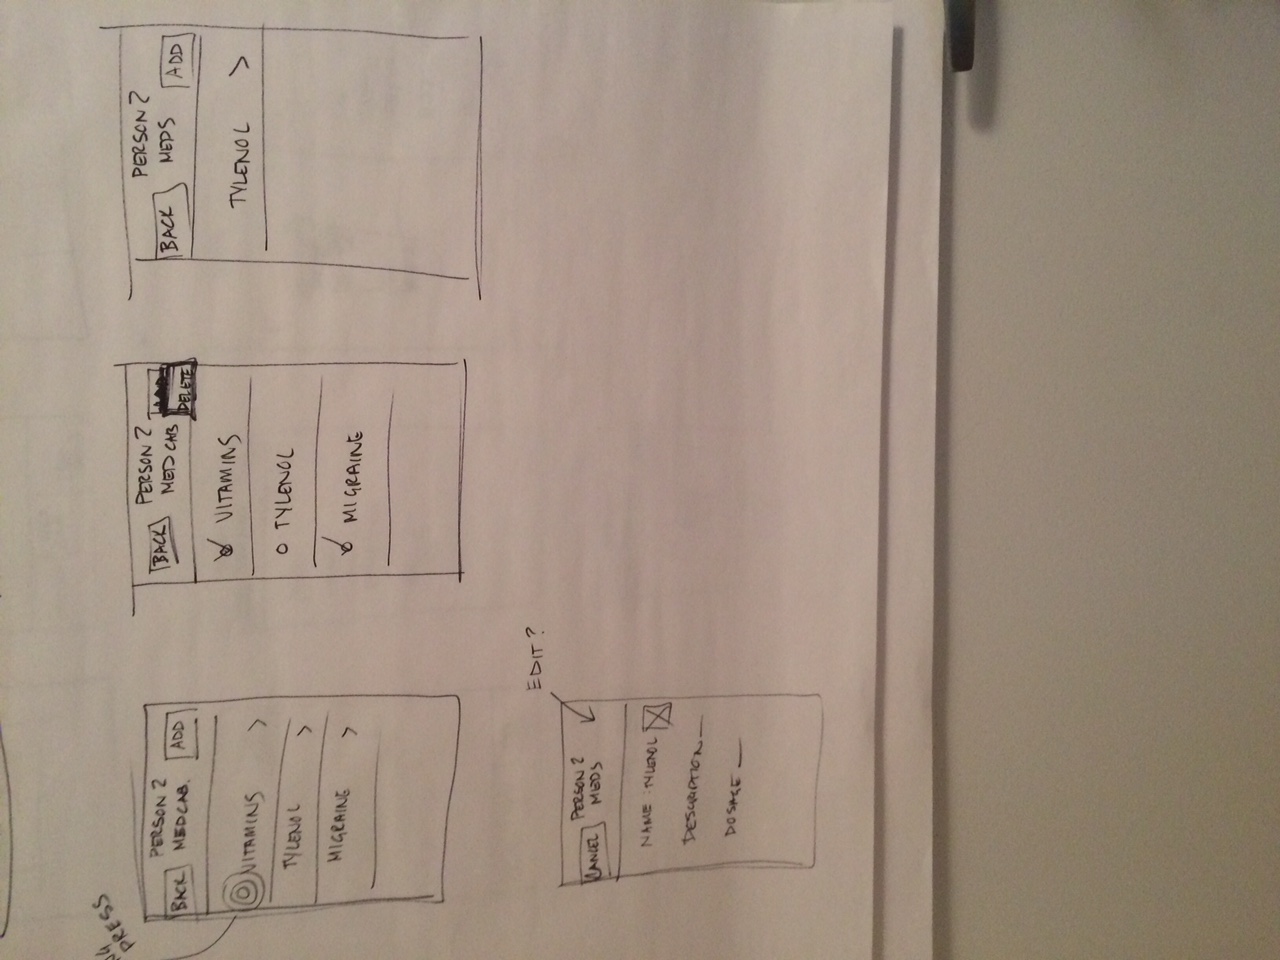 PRESS
PERSON 2
MED CAB.
BACK
ADD
VITAMINS >
TYLENOL >
MIGRAINE >
BACK
PERSON 2
MED CAB
DELETE
VITAMINS
TYLENOL
MIGRAINE
PERSON 2
MEDS
BACK
ADD
TYLENOL >
EDIT?
CANCEL
PERSON 2
MEDS
NAME : TYLENOL
DESCRIPTION __
DOSAGE __